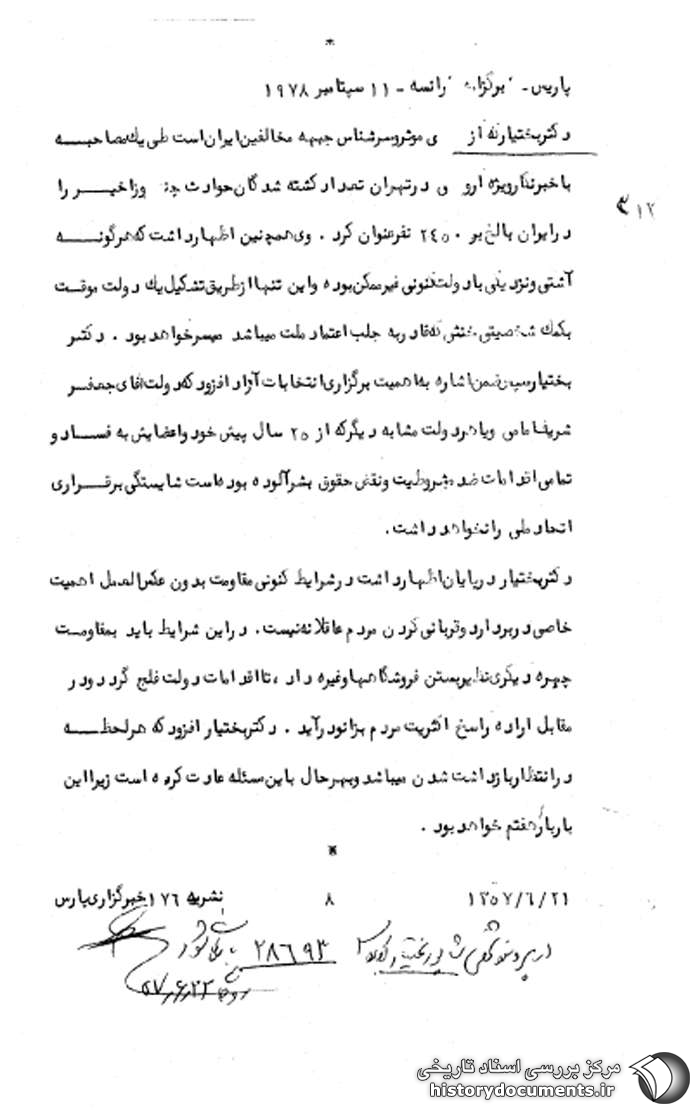 *
پاریس - خبرگزاری فرانسه - ۱۱ سپتامبر ۱۹۷۸
دکتر بختیار که از ی موثر و سرشناس جبهه مخالفین ایران است طی یک مصاحبه
با خبرنگار ویژه در تهران تعداد کشته شدگان حوادث چند روز اخیر را
در ایران بالغ بر ۲۴۵۰ نفر عنوان کرد . وی همچنین اظهار داشت که هرگونه
۳۱۲
آشتی و نزدیکی با دولت کنونی غیر ممکن بوده و این تنها از طریق تشکیل یک دولت موقت
بکمک شخصیتی خنثی که قادر به جلب اعتماد ملت میباشد میسر خواهد بود . دکتر
بختیار سپس ضمن اشاره به اهمیت برگزاری انتخابات آزاد افزود که دولت آقای جعفر
شریف امامی و یا هر دولت مشابه دیگر که از ۲۵ سال پیش خود و اعضایش به فساد و
تمامی اقدامات ضد مشروطیت و نقض حقوق بشر آلوده بوده است شایستگی برقراری
اتحاد ملی را نخواهد داشت .
دکتر بختیار در پایان اظهار داشت در شرایط کنونی مقاومت بدون عکس العمل اهمیت
خاصی در بر دارد و قربانی کردن مردم عاقلانه نیست . در این شرایط باید بمقاومت
چهره دیگری نظیر بستن فروشگاهها و غیره داد ، تا اقدامات دولت فلج گردد و در
مقابل اراده راسخ اکثریت مردم بزانو درآید . دکتر بختیار افزود که هر لحظه
در انتظار بازداشت شدن میباشد و بهر حال باین مسئله عادت کرده است زیرا این
بار بار هفتم خواهد بود .
*
۱۳۵۷/۶/۲۱ ۸ نشریه ۱۷۶ خبرگزاری پارس
در پرونده شاپور بختیار ۲۸۶۹۳ بایگانی شود
۵۷/۶/۲۲
مرکز بررسی اسناد تاریخی
historydocuments.ir